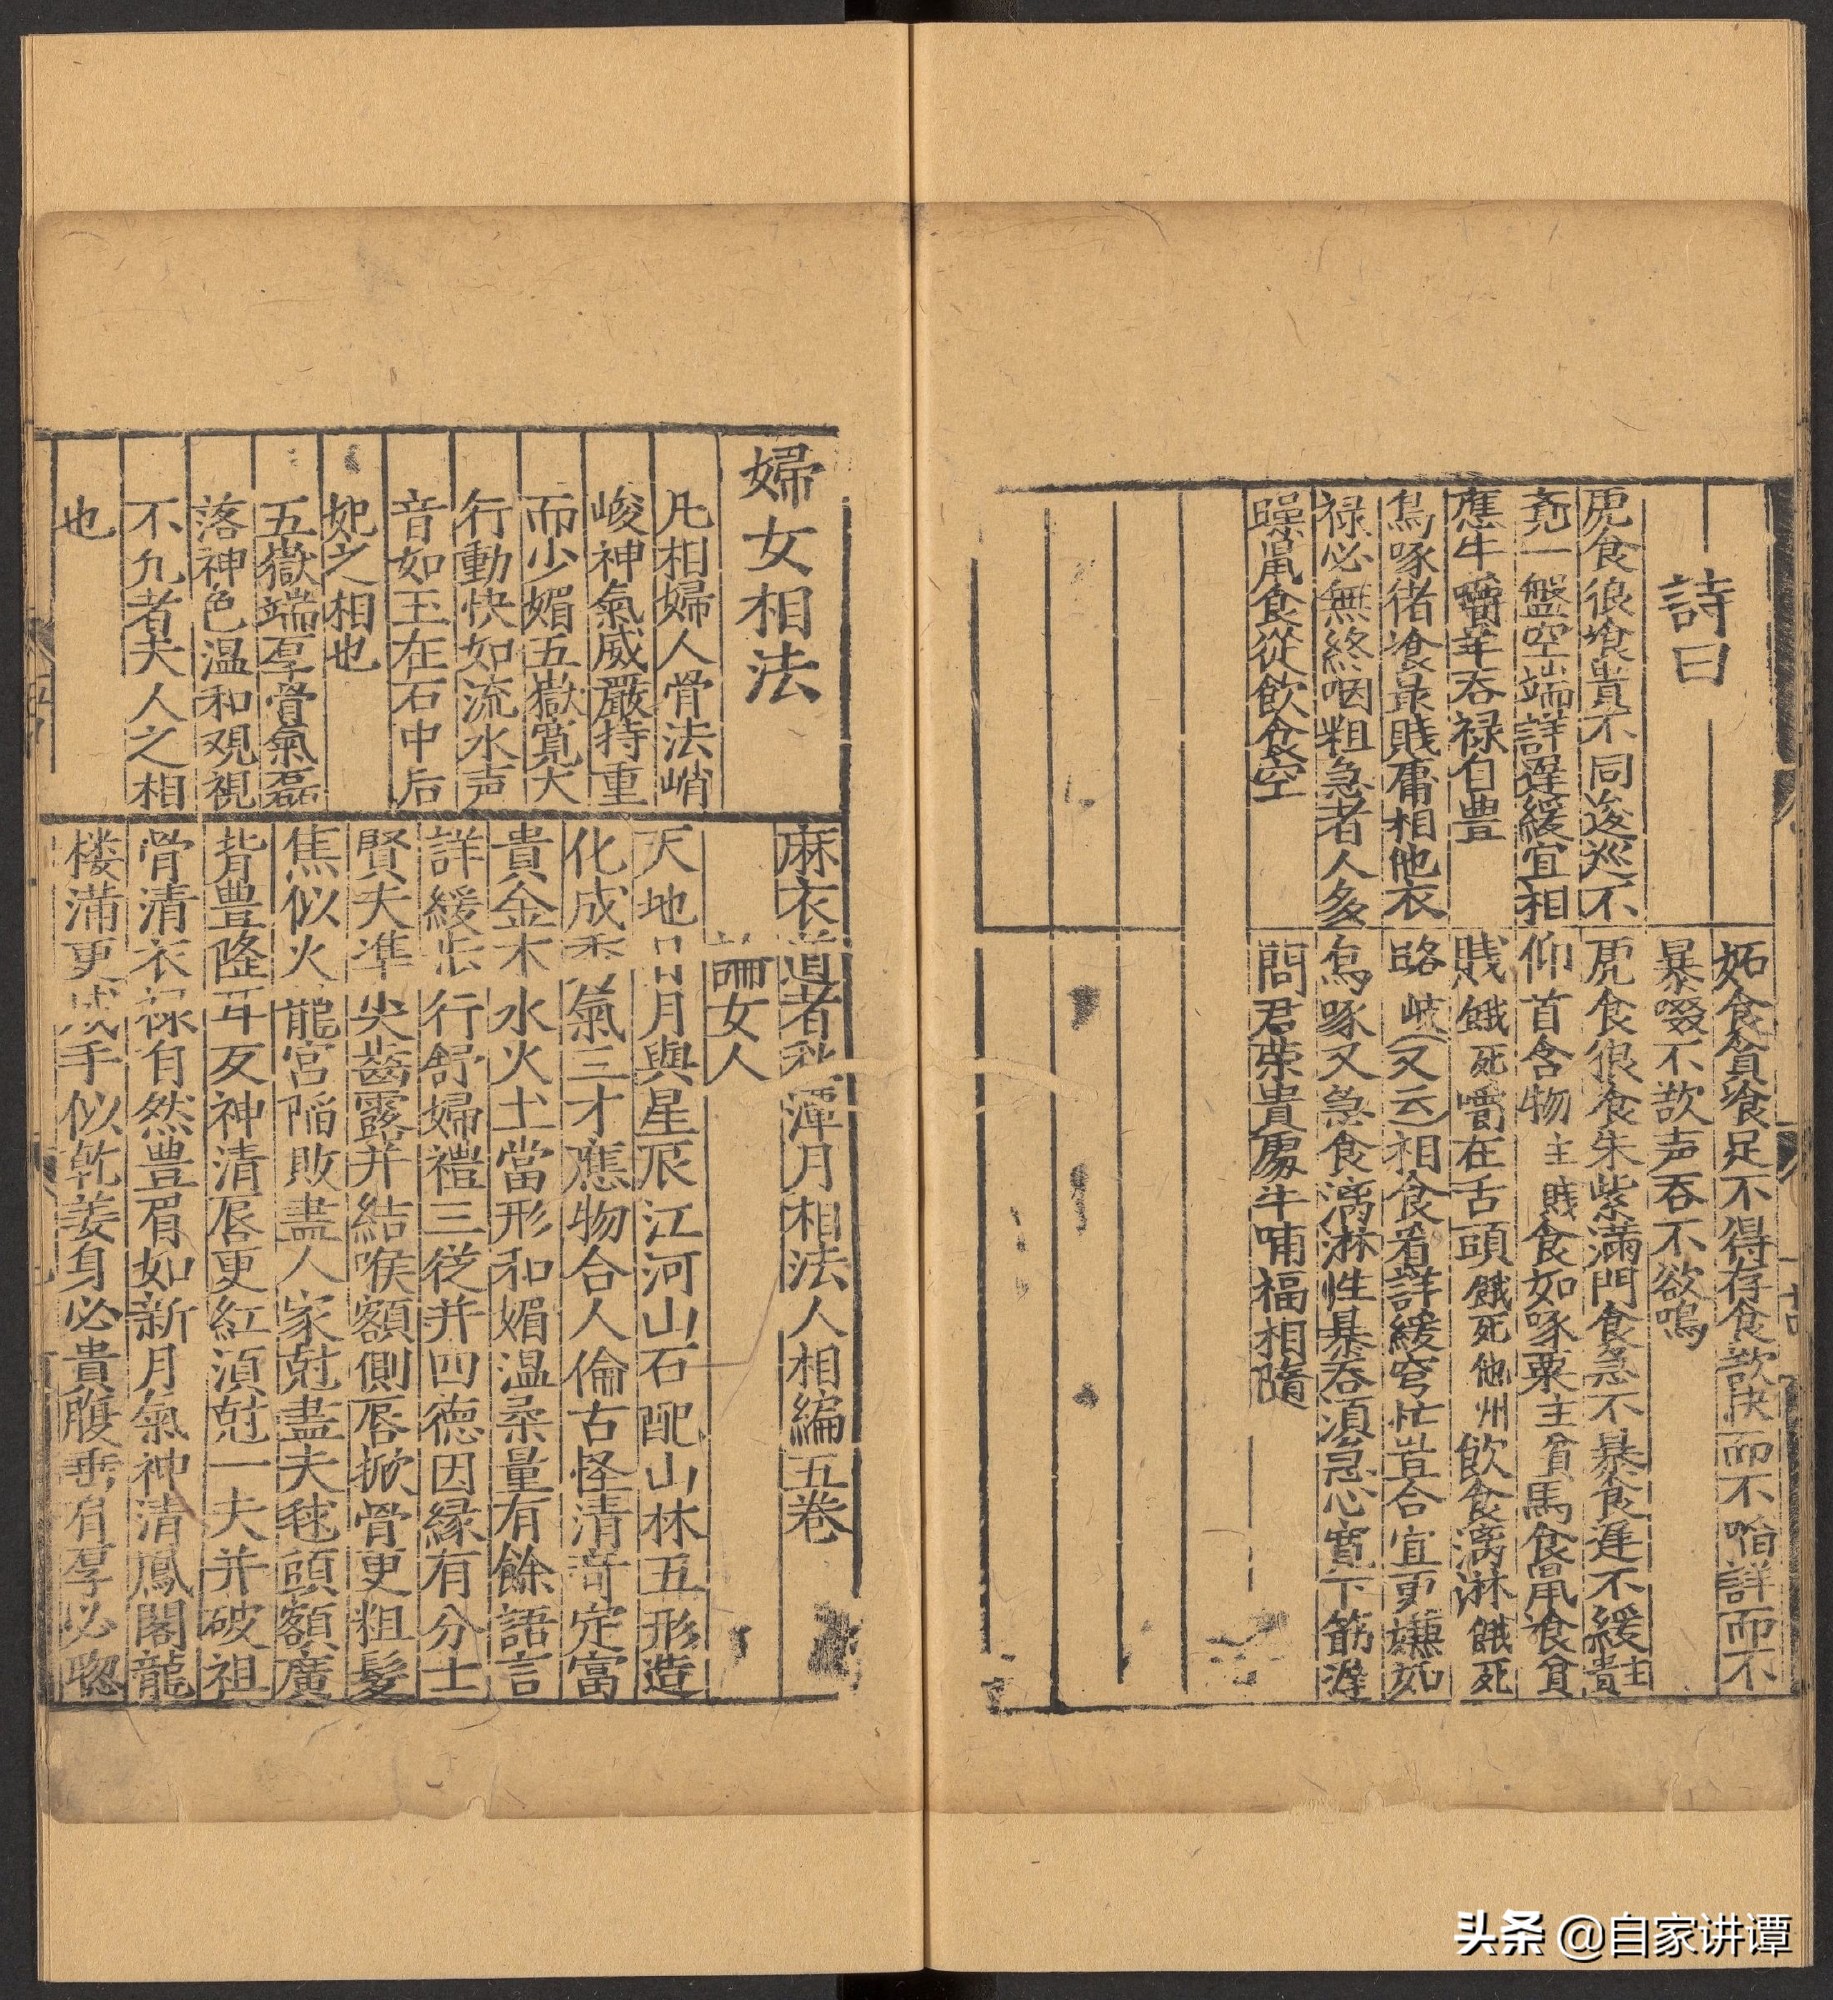 詩曰
虎食狼飡貴不同逡巡不
尭一盤空端詳遲緩宜相
應牛嚼羊吞禄自豊
鳥啄猪飡最賤庸相他衣
禄必無終咽粗急者人多
躁鼠食從飲食空
妬食貪飡足不得存食欲快而不㗖詳而不
暴啜不欲声吞不欲鳴
虎食狼食朱紫滿門食急不暴食遲不緩貴主
仰首含物主賎食如啄粟主貧馬食鼠飡貧
賎餓死嚼在舌頭餓死他州飲食漓淋餓死
路岐(又云)相食看詳緩穹忙豈合宜更嫌如
鳥啄又急食漓淋性暴吞須急心寛下筯遲
問君荣貴處牛哺福相隨
婦女相法
凡相婦人骨法峭
峻神氣威嚴持重
而少媚五嶽寛大
行動快如流水声
音如玉在石中后
妃之相也
五嶽端厚骨氣磊
落神色温和观視
不凡者夫人之相
也
麻衣道者秋潭月相法人相編五卷
論女人
天地日月與星辰江河山石配山林五形造
化成秀氣三才應物合人倫古怪清竒定富
貴金木水火土當形和媚温柔量有餘語言
詳緩步行舒婦禮三從并四德因縁有分士
賢夫準尖齒露并結喉額側唇掀骨更粗髮
焦似火龍宮陷敗盡人家尅盡夫毬頭額廣
背豊隆耳反神清唇更紅須尅一夫并破祖
骨清衣禄自然豊眉如新月氣神清鳳閣龍
楼满更成手似乾姜身必貴腹垂背厚必聦
头条 @自家讲谭